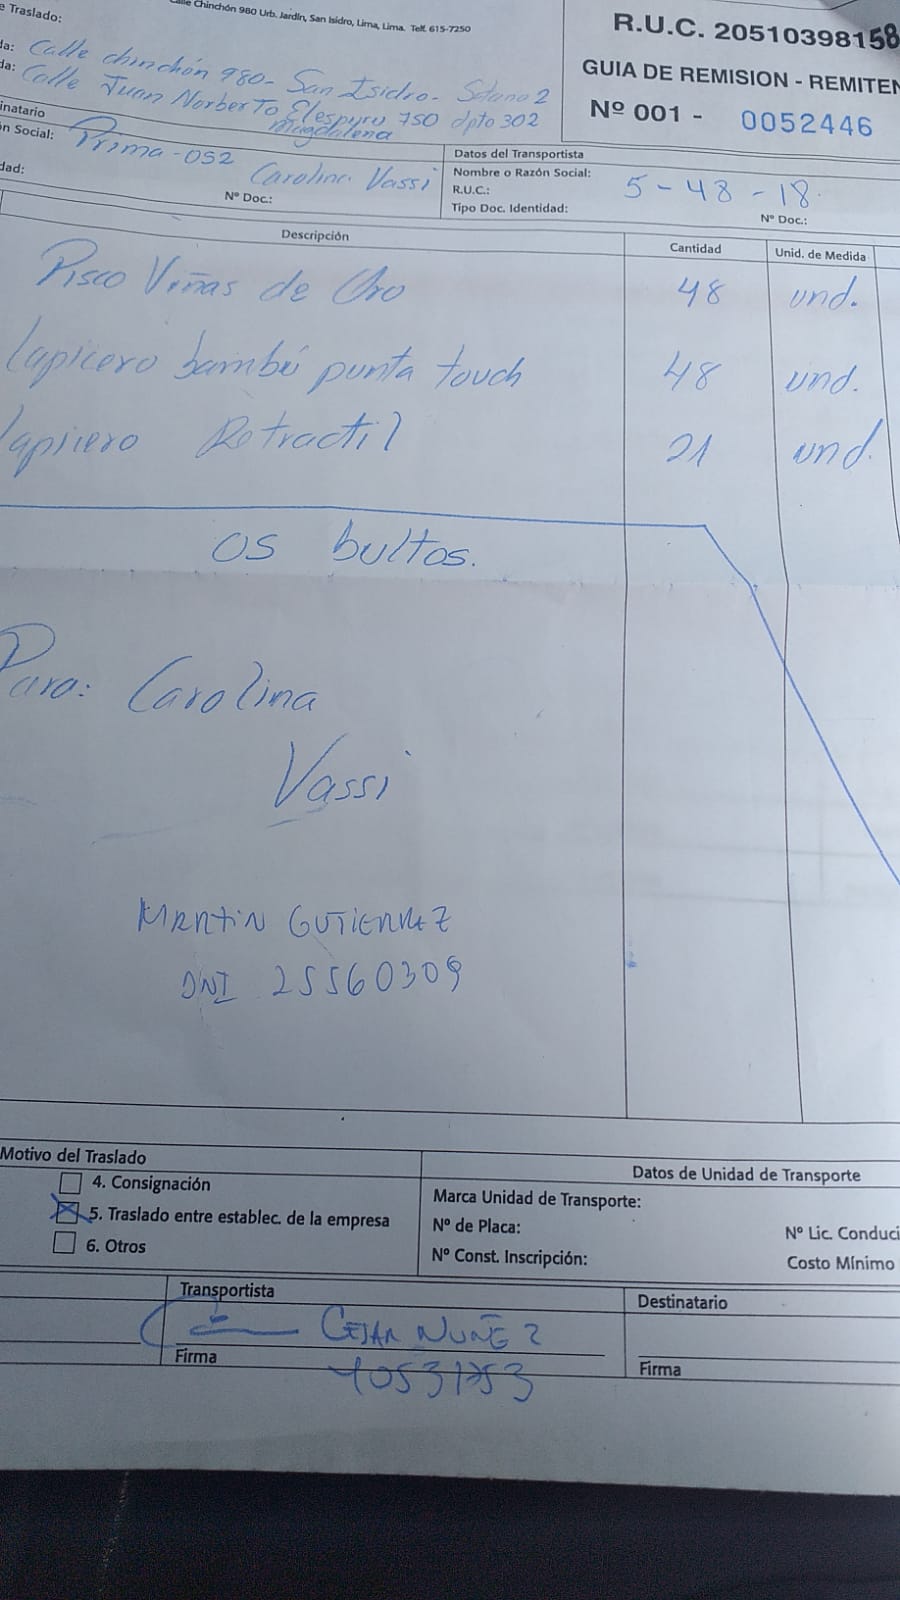 e Traslado:
Calle Chinchón 980 Urb. Jardín, San Isidro, Lima, Lima. Telf. 615-7250
da: Calle chinchón 980- San Isidro- Sótano 2
da: Calle Juan Norberto Elespuru 750 dpto 302
Magdalena
R.U.C. 20510398158
GUIA DE REMISION - REMITEN
Nº 001 - 0052446
inatario
ón Social: Prima-052 Carolina Vassi
dad:
Nº Doc.:
Datos del Transportista
Nombre o Razón Social:
R.U.C.: 5-48-18.
Tipo Doc. Identidad:
Nº Doc.:
Descripción Cantidad Unid. de Medida
Pisco Viñas de Oro 48 und.
lapicero bambú punta touch 48 und.
lapicero Retractil 21 und.
05 bultos.
Para: Carolina
Vassi
MARTIN GUTIERREZ
DNI 25560309
Motivo del Traslado
4. Consignación
5. Traslado entre establec. de la empresa
6. Otros
Datos de Unidad de Transporte
Marca Unidad de Transporte:
Nº de Placa:
Nº Lic. Conduci
Nº Const. Inscripción:
Costo Mínimo
Transportista
CESAR NUÑEZ
Firma
40531753
Destinatario
Firma